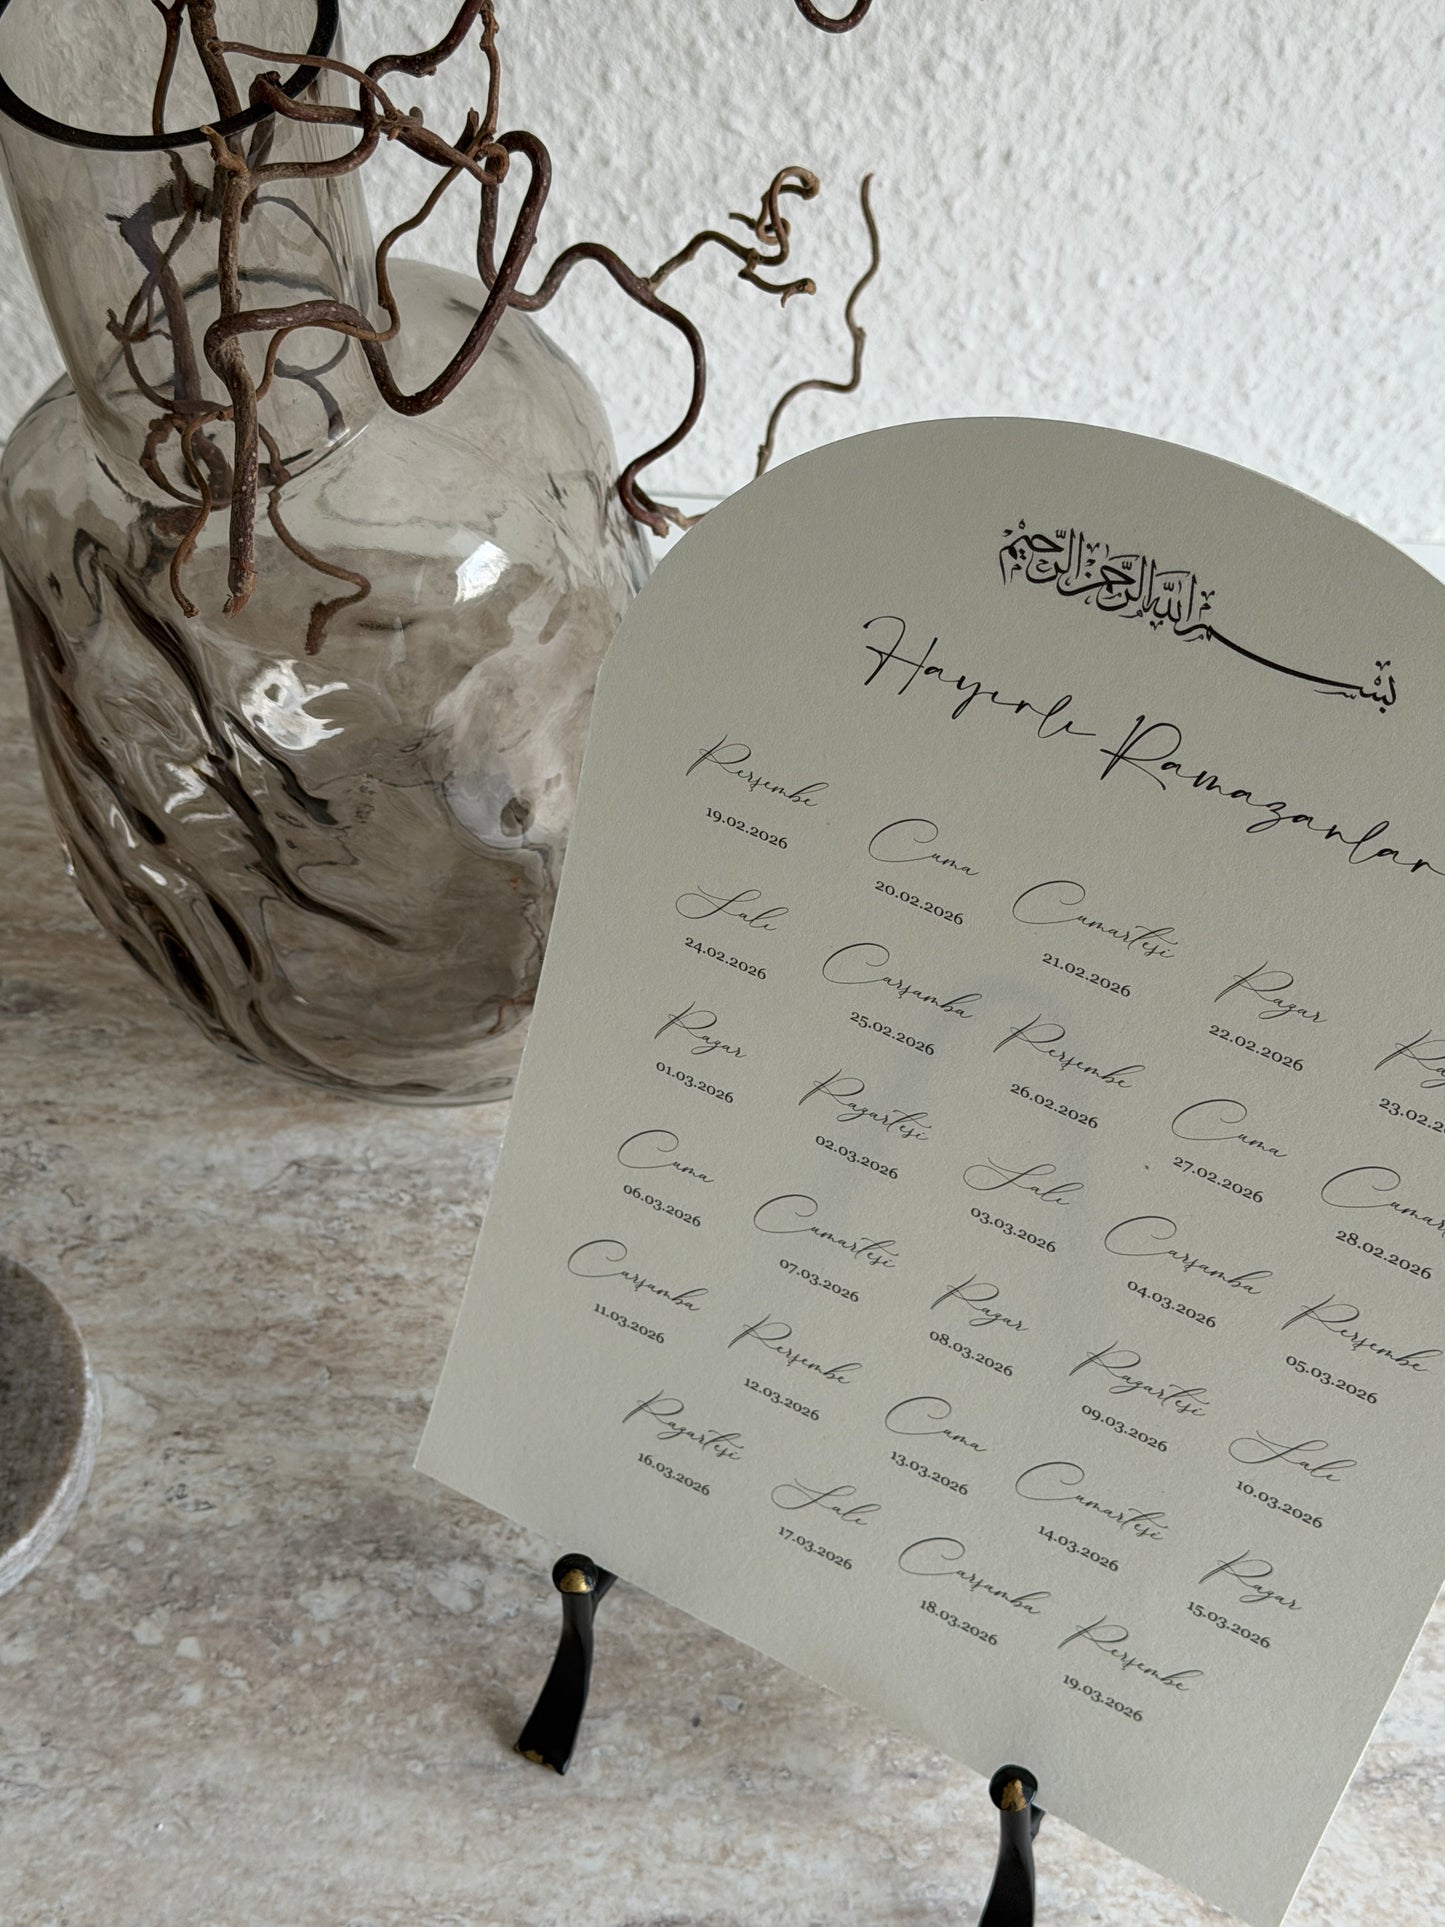 بِسْمِ اللهِ الرَّحْمٰنِ الرَّحِيمِ
Hayırlı Ramazanlar
Perşembe Cuma Cumartesi Pazar
19.02.2026 20.02.2026 21.02.2026 22.02.2026 23.02.2
Salı Çarşamba Perşembe Cuma Cumar
24.02.2026 25.02.2026 26.02.2026 27.02.2026 28.02.2026
Pazar Pazartesi Salı Çarşamba Perşembe
01.03.2026 02.03.2026 03.03.2026 04.03.2026 05.03.2026
Cuma Cumartesi Pazar Pazartesi Salı
06.03.2026 07.03.2026 08.03.2026 09.03.2026 10.03.2026
Çarşamba Perşembe Cuma Cumartesi Pazar
11.03.2026 12.03.2026 13.03.2026 14.03.2026 15.03.2026
Pazartesi Salı Çarşamba Perşembe
16.03.2026 17.03.2026 18.03.2026 19.03.2026